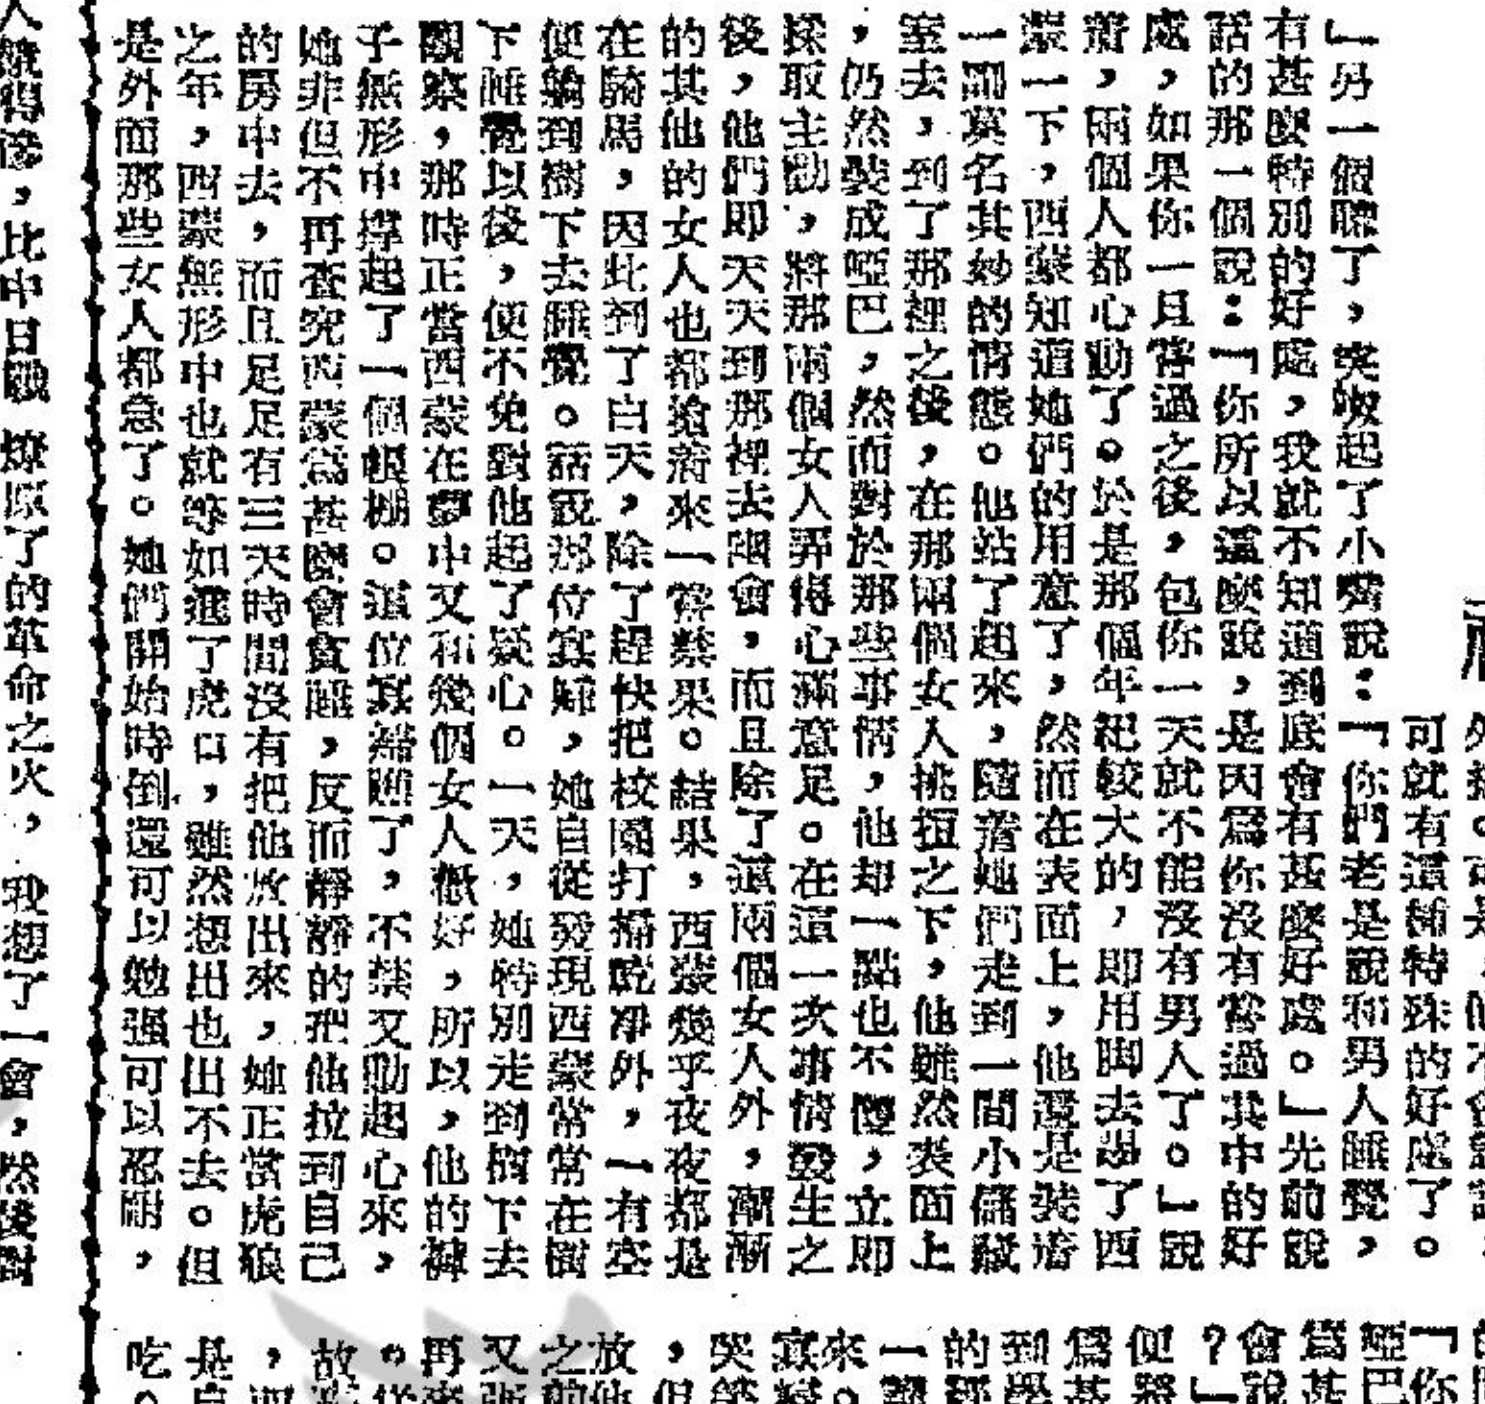 可就有這種特殊的好處了。
」另一個聽了，突啜起了小嘴說：「你們老是說和男人睡覺，
有甚麼特別的好處，我就不知道到底會有甚麼好處。」先前說
話的那一個說：「你所以這麼說，是因爲你沒有嘗過其中的好
處，如果你一旦嘗過之後，包你一天就不能沒有男人了。」說
着，兩個人都心動了。於是那個年紀較大的，即用脚去踢了西
蒙一下，西蒙知道她們的用意了，然而在表面上，他還是裝着
一副莫名其妙的情態。他站了起來，隨着她們走到一間小儲藏
室去，到了那裡之後，在那兩個女人挑逗之下，他雖然表面上
，仍然裝成啞巴，然而對於那些事情，他却一點也不儍，立即
採取主動，將那兩個女人弄得心滿意足。在這一次事情發生之
後，他們即天天到那裡去幽會，而且除了這兩個女人外，漸漸
的其他的女人也都搶着來一嘗禁果。結果，西蒙幾乎夜夜都是
在騎馬，因此到了白天，除了趕快把校園打掃乾净外，一有空
便躺到樹下去睡覺。話說那位寡婦，她自從發現西蒙常常在樹
下睡覺以後，便不免對他起了疑心。一天，她特別走到樹下去
觀察，那時正當西蒙在夢中又和幾個女人僌好，所以，他的褲
子無形中撑起了一個帳棚。這位寡婦睡了，不禁又動起心來，
她非但不再查究西蒙爲甚麼會貪睡，反而靜靜的把他拉到自己
的房中去，而且足足有三天時間沒有把他放出來，她正當虎狼
之年，西蒙無形中也就等如進了虎口，雖然想出也出不去。但
是外面那些女人都急了。她們開始時倒還可以勉强可以忍耐，
人燒得慘，比中日戰 燎原了的革命之火，我想了一會，然後對